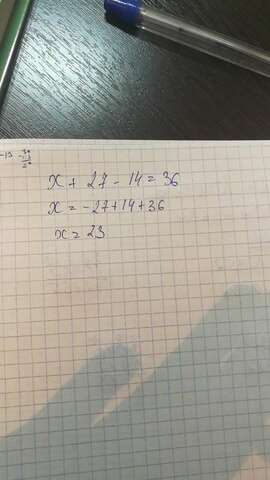 x + 27 - 14 = 36
x = -27 + 14 + 36
x = 23